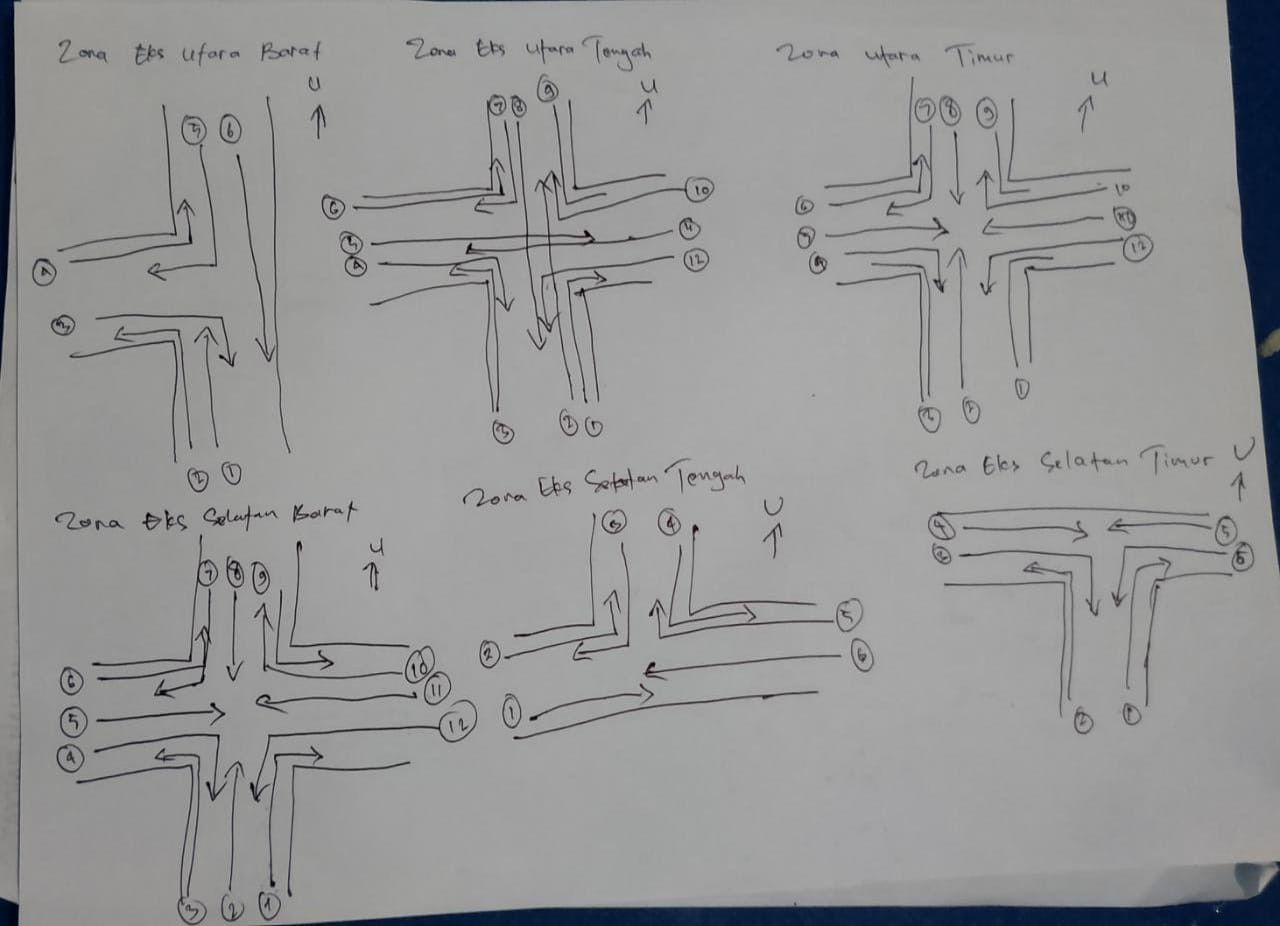 Zona Eks Utara Barat
U
5 6
4
3
2 1
Zona Eks Utara Tengah
U
7 8 9
6
5
4
10
11
12
3 2 1
Zona Utara Timur
U
7 8 9
6
5
4
10
12
3 2 1
Zona Eks Selatan Barat
U
7 8 9
6
5
4
10
11
12
3 2 1
Zona Eks Selatan Tengah
U
3 4
2
1
5
6
Zona Eks Selatan Timur
U
4
3
5
6
2 1